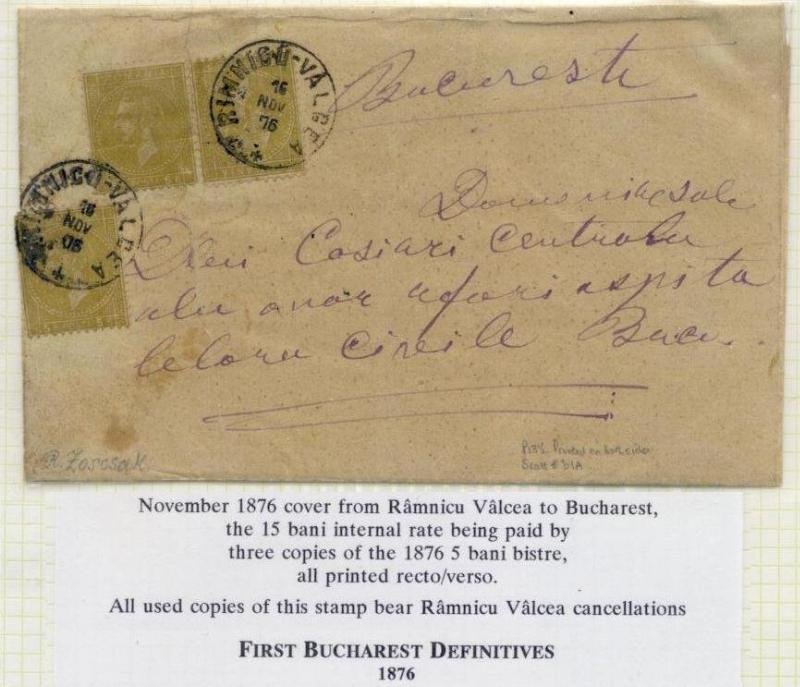 RIMNICU-VALCEA
16
NOV
76
Bucuresti
RIMNICU-VALCEA
16
NOV
76
Casiari Centralu
aspita
lelora Civile Bucu.
R. Zorcsak
P13½ Printed on both sides
Scott # 61A
November 1876 cover from Râmnicu Vâlcea to Bucharest,
the 15 bani internal rate being paid by
three copies of the 1876 5 bani bistre,
all printed recto/verso.
All used copies of this stamp bear Râmnicu Vâlcea cancellations
FIRST BUCHAREST DEFINITIVES
1876